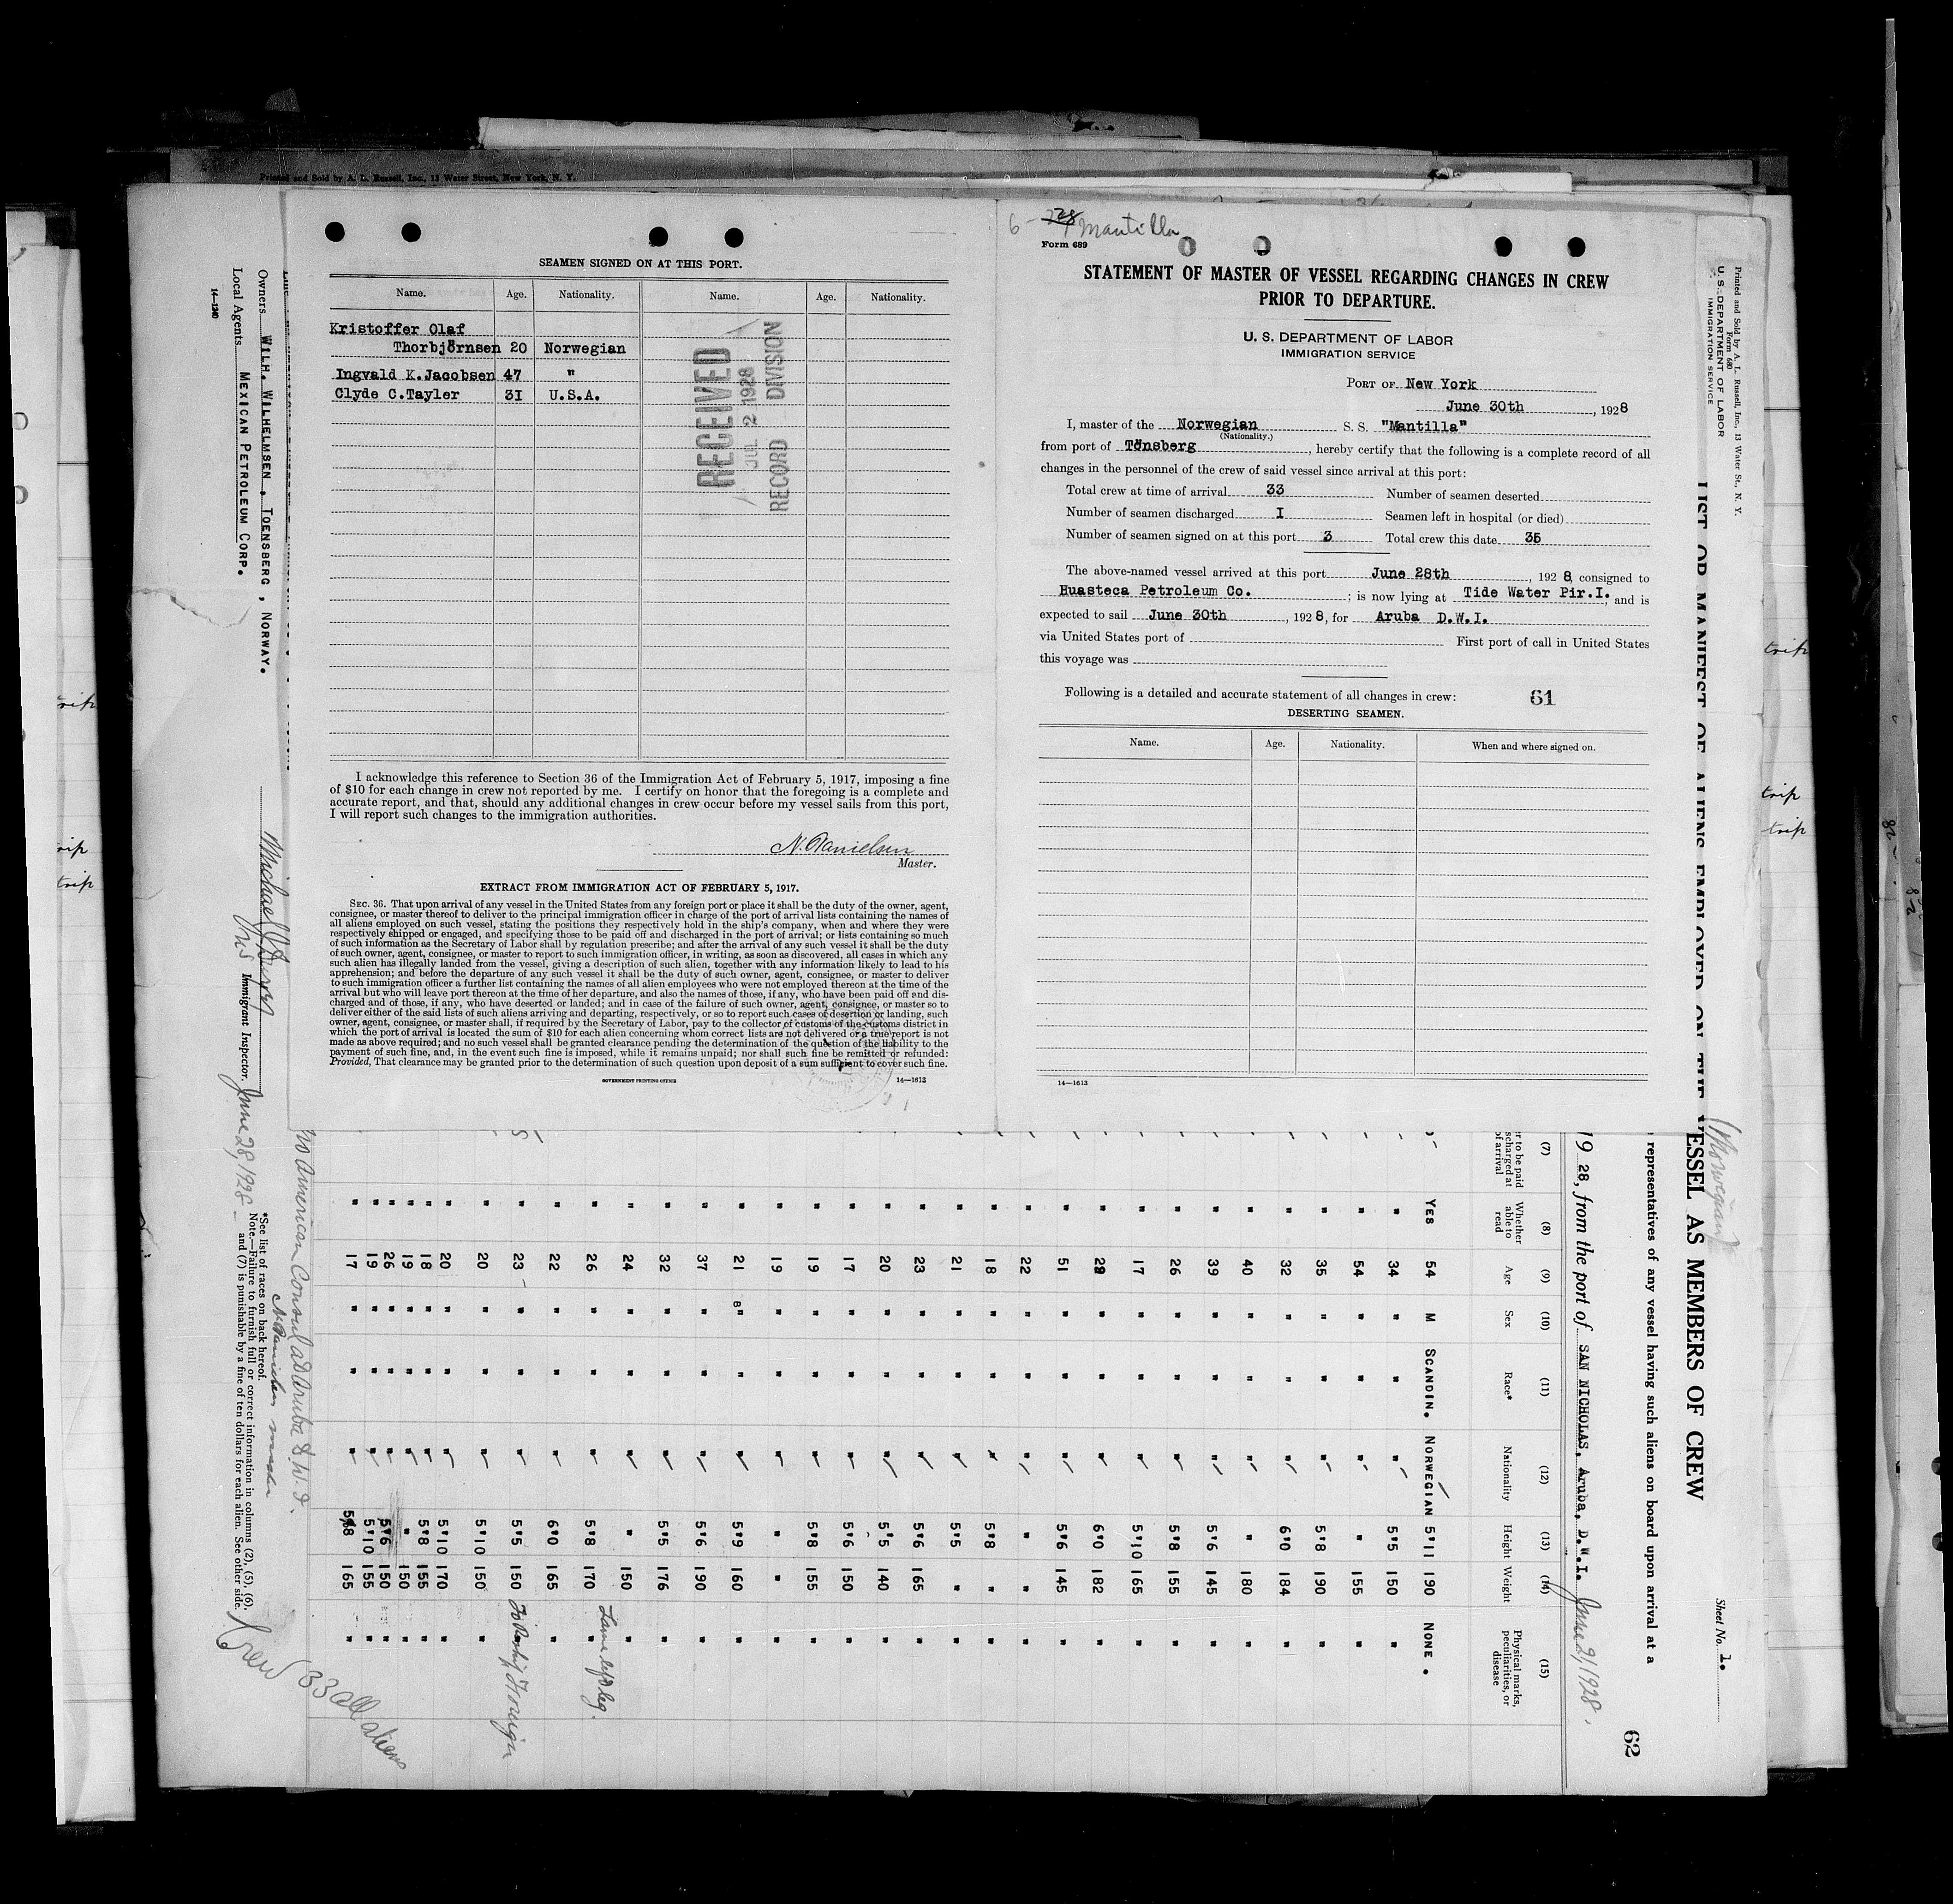 Printed and Sold by A. L. Russell, Inc., 13 Water Street, New York, N. Y.
SEAMEN SIGNED ON AT THIS PORT.
Name. Age. Nationality. Name. Age. Nationality.
Kristoffer Olaf
Thorbjörnsen 20 Norwegian
Ingvald K.Jacobsen 47 "
Clyde C.Tayler 3I U.S.A.
RECEIVED
JUL 2 1928
RECORD DIVISION
I acknowledge this reference to Section 36 of the Immigration Act of February 5, 1917, imposing a fine
of $10 for each change in crew not reported by me. I certify on honor that the foregoing is a complete and
accurate report, and that, should any additional changes in crew occur before my vessel sails from this port,
I will report such changes to the immigration authorities.
N. Danielsen
Master.
EXTRACT FROM IMMIGRATION ACT OF FEBRUARY 5, 1917.
SEC. 36. That upon arrival of any vessel in the United States from any foreign port or place it shall be the duty of the owner, agent,
consignee, or master thereof to deliver to the principal immigration officer in charge of the port of arrival lists containing the names of
all aliens employed on such vessel, stating the positions they respectively hold in the ship's company, when and where they were
respectively shipped or engaged, and specifying those to be paid off and discharged in the port of arrival; or lists containing so much
of such information as the Secretary of Labor shall by regulation prescribe; and after the arrival of any such vessel it shall be the duty
of such owner, agent, consignee, or master to report to such immigration officer, in writing, as soon as discovered, all cases in which any
such alien has illegally landed from the vessel, giving a description of such alien, together with any information likely to lead to his
apprehension; and before the departure of any such vessel it shall be the duty of such owner, agent, consignee, or master to deliver
to such immigration officer a further list containing the names of all alien employees who were not employed thereon at the time of the
arrival but who will leave port thereon at the time of her departure, and also the names of those, if any, who have been paid off and dis-
charged and of those, if any, who have deserted or landed; and in case of the failure of such owner, agent, consignee, or master so to
deliver either of the said lists of such aliens arriving and departing, respectively, or so to report such cases of desertion or landing, such
owner, agent, consignee, or master shall, if required by the Secretary of Labor, pay to the collector of customs of the customs district in
which the port of arrival is located the sum of $10 for each alien concerning whom correct lists are not delivered or a true report is not
made as above required; and no such vessel shall be granted clearance pending the determination of the question of the liability to the
payment of such fine, and, in the event such fine is imposed, while it remains unpaid; nor shall such fine be remitted or refunded:
Provided, That clearance may be granted prior to the determination of such question upon deposit of a sum sufficient to cover such fine.
GOVERNMENT PRINTING OFFICE 14—1613
6- 28 Mantilla
Form 689
STATEMENT OF MASTER OF VESSEL REGARDING CHANGES IN CREW
PRIOR TO DEPARTURE.
U. S. DEPARTMENT OF LABOR
IMMIGRATION SERVICE
PORT OF New York
June 30th, 1928
I, master of the Norwegian S. S. "Mantilla"
(Nationality.)
from port of Tönsberg, hereby certify that the following is a complete record of all
changes in the personnel of the crew of said vessel since arrival at this port:
Total crew at time of arrival 33 Number of seamen deserted
Number of seamen discharged I Seamen left in hospital (or died)
Number of seamen signed on at this port 3 Total crew this date 35
The above-named vessel arrived at this port June 28th, 1928, consigned to
Huasteca Petroleum Co.; is now lying at Tide Water Pir.I., and is
expected to sail June 30th, 1928, for Aruba D.W.I.
via United States port of First port of call in United States
this voyage was
Following is a detailed and accurate statement of all changes in crew: 61
DESERTING SEAMEN.
Name. Age. Nationality. When and where signed on.
14—1613
Printed and Sold by A. L. Russell, Inc., 13 Water St., N. Y.
Form 680
U. S. DEPARTMENT OF LABOR
IMMIGRATION SERVICE
Sheet No. 1.
(Norwegian)
LIST OR MANIFEST OF ALIENS EMPLOYED ON THE VESSEL AS MEMBERS OF CREW
62
representatives of any vessel having such aliens on board upon arrival at a
1928, from the port of SAN NICHOLAS, Aruba, D.W.I. June 21, 1928.
(7) (8) (9) (10) (11) (12) (13) (14) (15)
Whether able to read Age Sex Race* Nationality Height Weight Physical marks, peculiarities, or disease
YES 54 M SCANDIN. NORWEGIAN 5'11 190 NONE.
" 34 " " " 5'5 150 "
" 54 " " " " 155 "
" 35 " " " 5'8 190 "
" 32 " " " 6'0 184 "
" 40 " " " " 180 "
" 39 " " " 5'6 145 "
" 26 " " " 5'8 155 "
" 17 " " " 5'10 165 "
" 29 " " " 6'0 182 "
" 51 " " " 5'6 145 "
" 22 " " " " " "
" 18 " " " 5'8 " "
" 21 " " " 5'5 " "
" 23 " " " 5'6 165 "
" 20 " " " 5'5 140 "
" 17 " " " 5'6 150 "
" 19 " " " 5'8 155 "
" 19 " " " " " "
" 21 " " " 5'9 160 "
" 37 " " " 5'6 190 "
" 32 " " " 5'5 176 "
" 24 " " " " 150 "
" 26 " " " 5'8 170 Lame left leg.
" 22 " " " 6'0 165 "
" 23 " " " 5'5 150 To Reship Foreign
" 20 " " " 5'10 150 "
" 20 " " " 5'10 170 "
" 18 " " " 5'8 155 "
" 19 " " " " 150 "
" 26 " " " 5'6 150 "
" 19 " " " 5'10 155 "
" 17 " " " 5'8 165 "
No American Consul at Aruba D.W.I.
N. Danielsen master
*See list of races on back hereof.
Note.—Failure to furnish full or correct information in columns (2), (5), (6),
and (7) is punishable by a fine of ten dollars for each alien. See other side.
Crew 33 all aliens
Owners WILH. WILHELMSEN, TOENSBERG, NORWAY.
Local Agents MEXICAN PETROLEUM CORP.
14—1240
Immigrant Inspector. June 28, 1928
trip
trip
trip
trip
trip